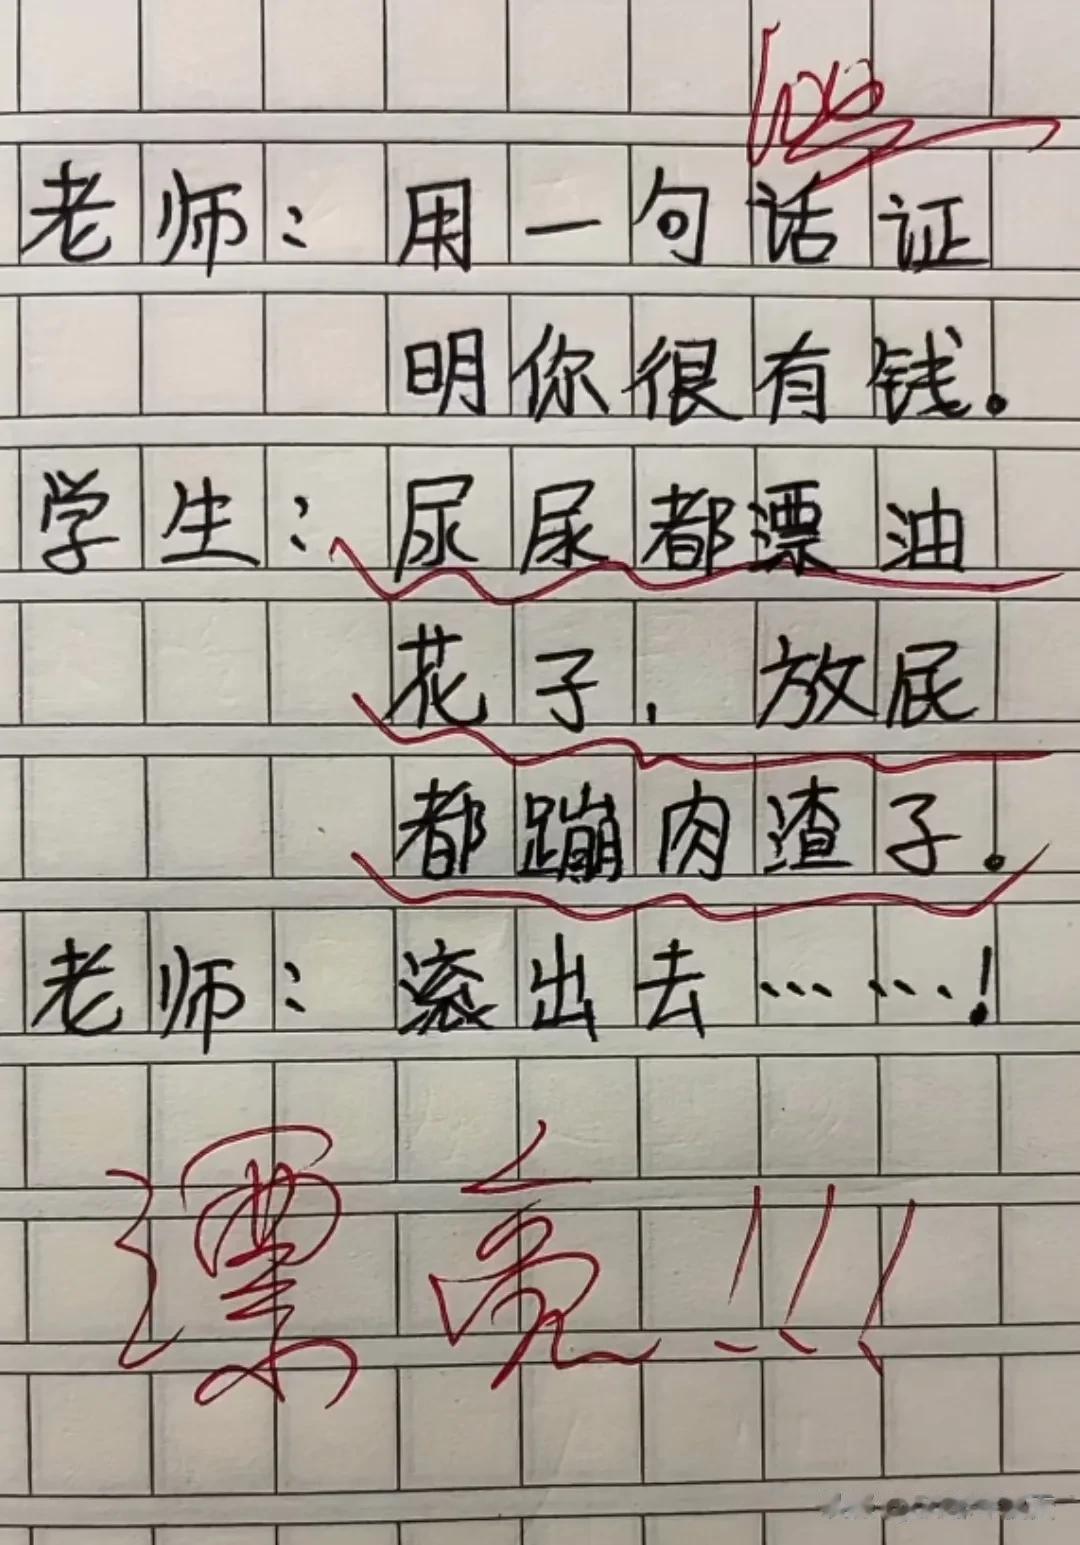 100
老师：用一句话证
明你很有钱.
学生：尿尿都漂油
花子，放屁
都蹦肉渣子.
老师：滚出去……!
漂亮!!!